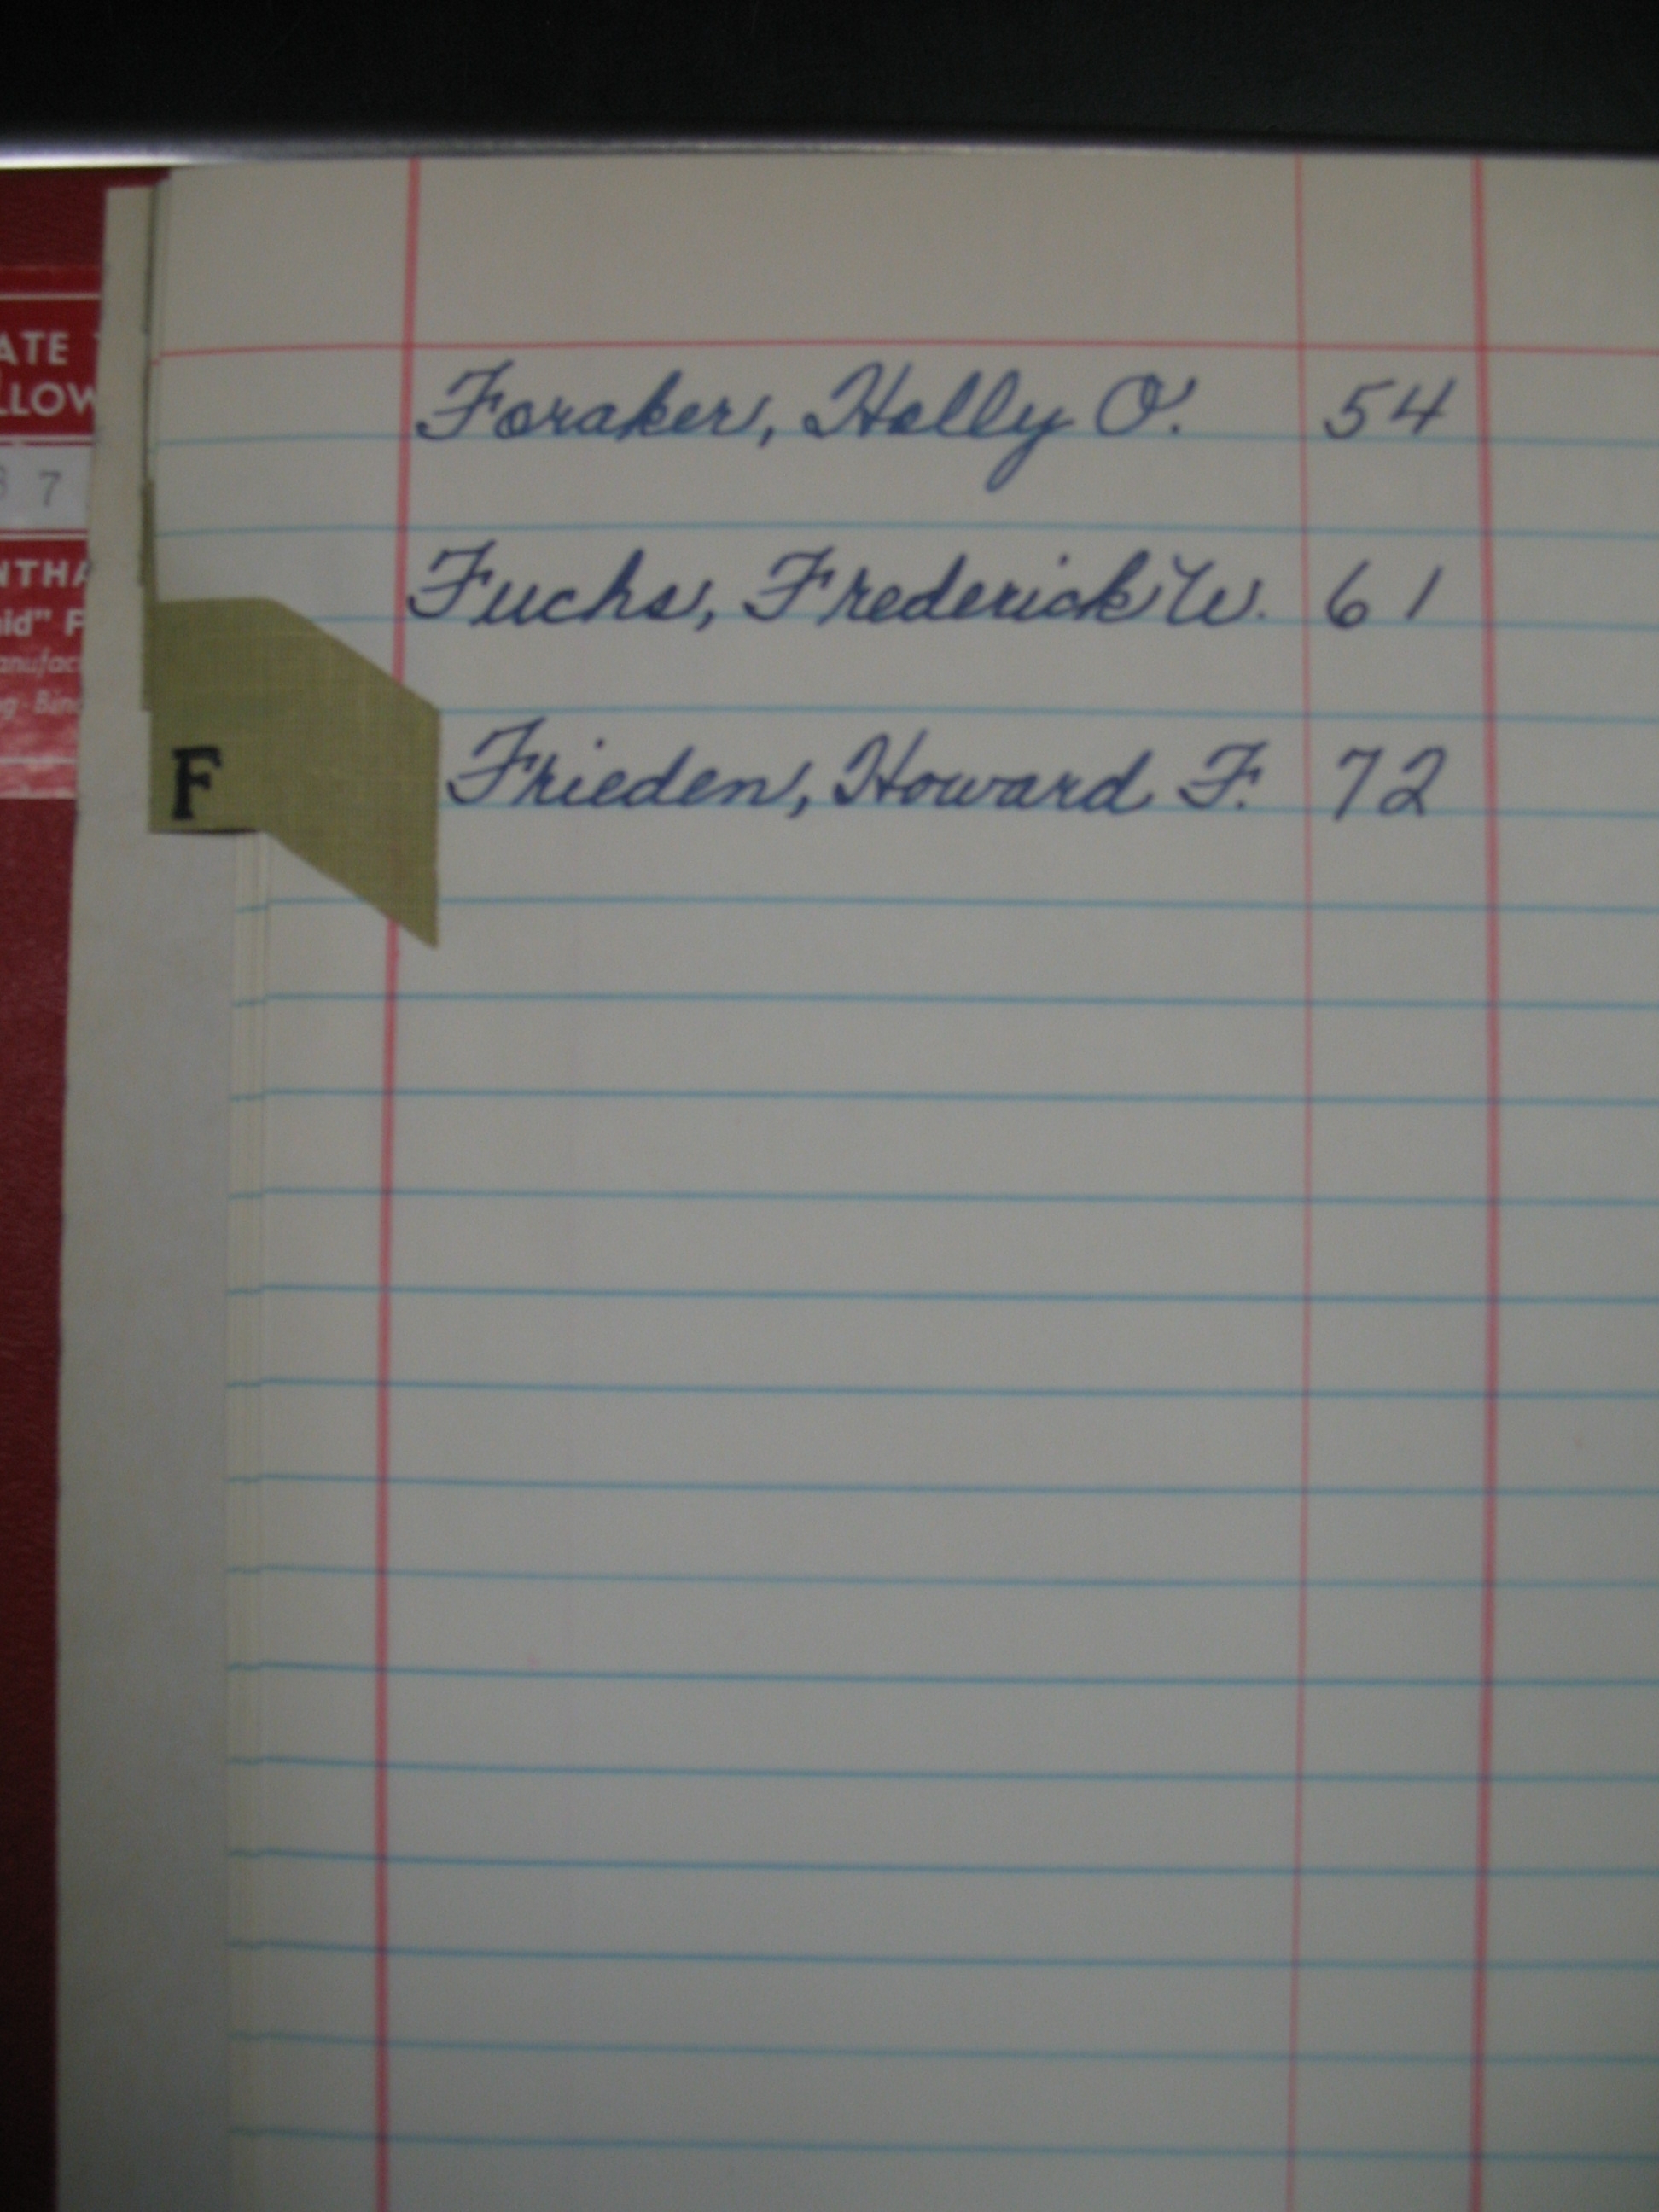 ATE
LLOW
7
NTHA
aid" P
anufac
g · Bind
Foraker, Holly O. 54
Fuchs, Frederick W. 61
F
Frieden, Howard F. 72